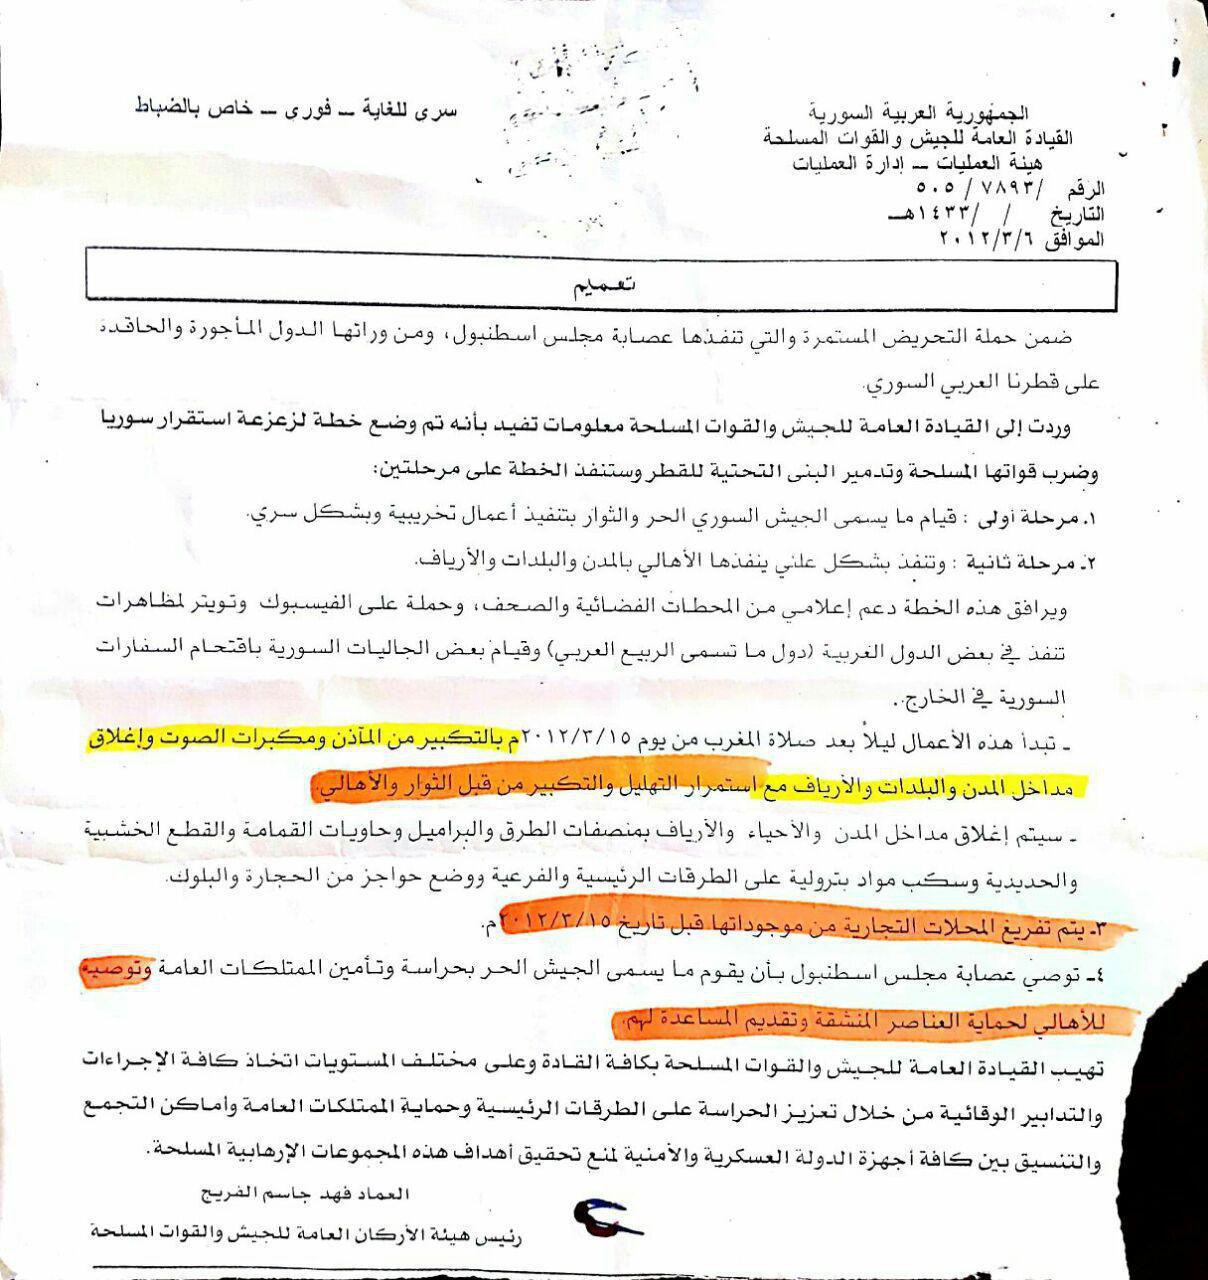 الجمهورية العربية السورية
القيادة العامة للجيش والقوات المسلحة
هيئة العمليات ــ إدارة العمليات
الرقم /٧٨٩٣ / ٥٠٥
التاريخ / /١٤٣٣هــ
الموافق ٢٠١٢/٣/٦
سري للغاية ــ فوري ــ خاص بالضباط
تعميم
ضمن حملة التحريض المستمرة والتي تنفذها عصابة مجلس اسطنبول، ومن ورائها الدول المأجورة والحاقدة
على قطرنا العربي السوري.
وردت إلى القيادة العامة للجيش والقوات المسلحة معلومات تفيد بأنه تم وضع خطة لزعزعة استقرار سوريا
وضرب قواتها المسلحة وتدمير البنى التحتية للقطر وستنفذ الخطة على مرحلتين:
١. مرحلة أولى : قيام ما يسمى الجيش السوري الحر والثوار بتنفيذ أعمال تخريبية وبشكل سري.
٢ـ مرحلة ثانية : وتنفذ بشكل علني ينفذها الأهالي بالمدن والبلدات والأرياف.
ويرافق هذه الخطة دعم إعلامي من المحطات الفضائية والصحف، وحملة على الفيسبوك وتويتر لمظاهرات
تنفذ في بعض الدول الغربية (دول ما تسمى الربيع العربي) وقيام بعض الجاليات السورية باقتحام السفارات
السورية في الخارج.
ـ تبدأ هذه الأعمال ليلاً بعد صلاة المغرب من يوم ٢٠١٢/٣/١٥م بالتكبير من المآذن ومكبرات الصوت وإغلاق
مداخل المدن والبلدات والأرياف مع استمرار التهليل والتكبير من قبل الثوار والأهالي.
ـ سيتم إغلاق مداخل المدن والأحياء والأرياف بمنصفات الطرق والبراميل وحاويات القمامة والقطع الخشبية
والحديدية وسكب مواد بترولية على الطرقات الرئيسية والفرعية ووضع حواجز من الحجارة والبلوك.
٣ـ يتم تفريغ المحلات التجارية من موجوداتها قبل تاريخ ٢٠١٢/٣/١٥م.
٤ـ توصي عصابة مجلس اسطنبول بأن يقوم ما يسمى الجيش الحر بحراسة وتأمين الممتلكات العامة وتوصية
للأهالي لحماية العناصر المنشقة وتقديم المساعدة لهم.
تهيب القيادة العامة للجيش والقوات المسلحة بكافة القادة وعلى مختلف المستويات اتخاذ كافة الإجراءات
والتدابير الوقائية من خلال تعزيز الحراسة على الطرقات الرئيسية وحماية الممتلكات العامة وأماكن التجمع
والتنسيق بين كافة أجهزة الدولة العسكرية والأمنية لمنع تحقيق أهداف هذه المجموعات الإرهابية المسلحة.
العماد فهد جاسم الفريج
رئيس هيئة الأركان العامة للجيش والقوات المسلحة